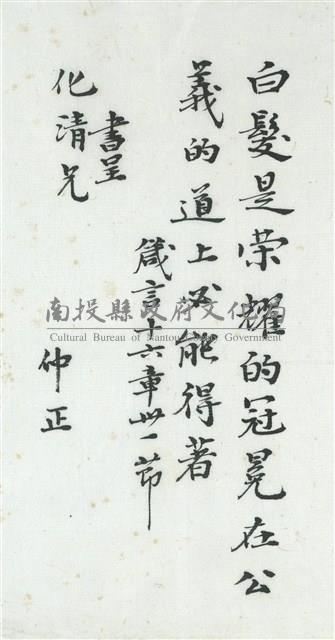 白髮是荣耀的冠冕在公
義的道上必能得著
箴言十六章卅一節
書呈
化清兄
仲正
南投縣政府文化局
Cultural Bureau of Nantou County Government